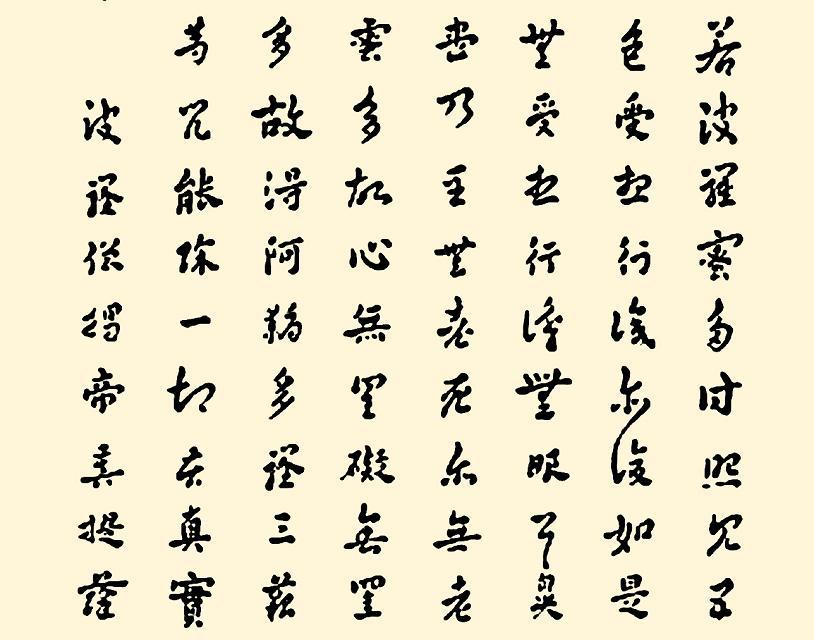 若波羅蜜多時照見五
色受想行識亦復如是
無受想行識無眼耳鼻
盡乃至無老死亦無老
蜜多故心無罣礙無罣
多故得阿耨多羅三藐
等咒能除一切苦真實
波羅僧揭帝菩提薩